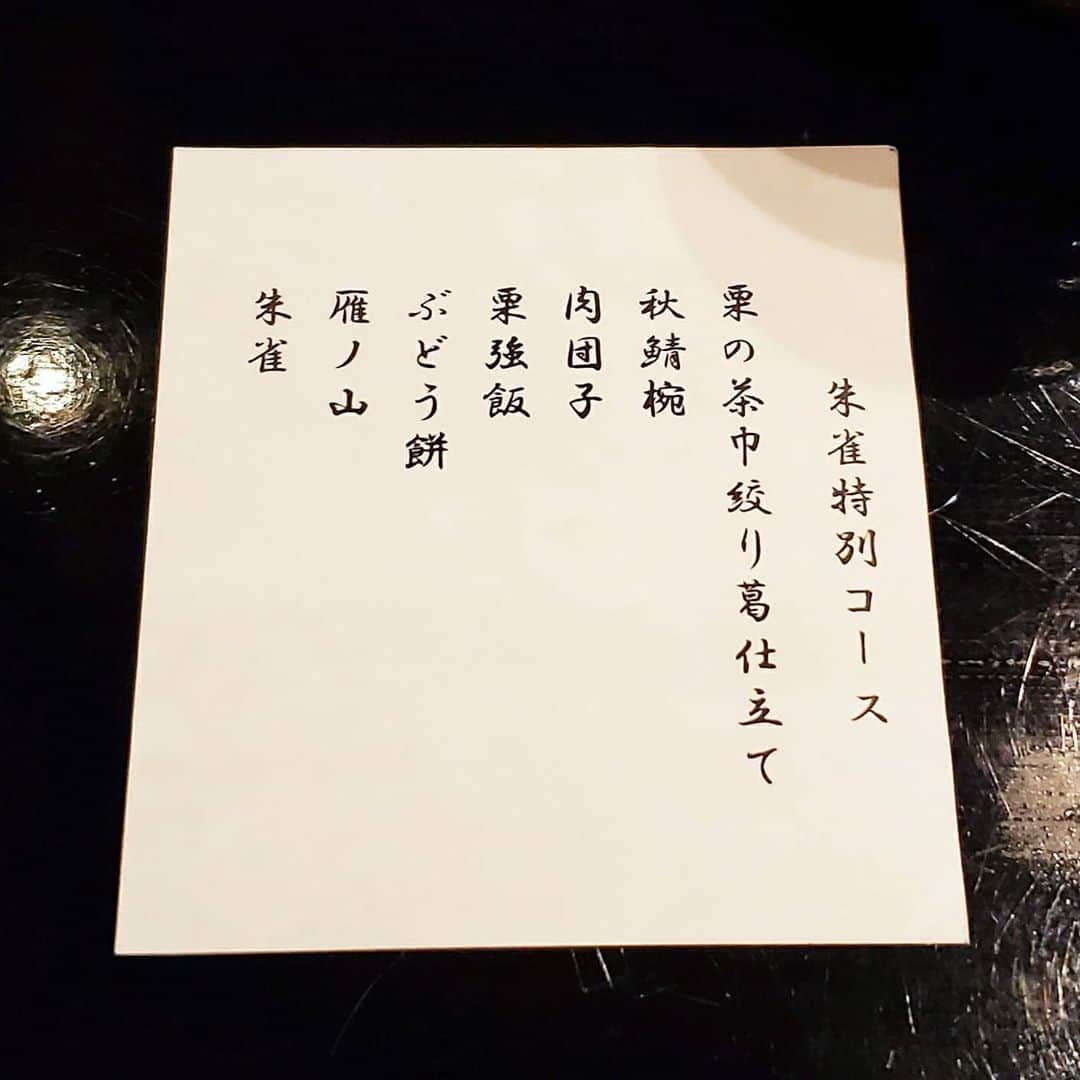 朱雀特別コース
栗の茶巾絞り葛仕立て
秋鯖椀
肉団子
栗強飯
ぶどう餅
雁ノ山
朱雀